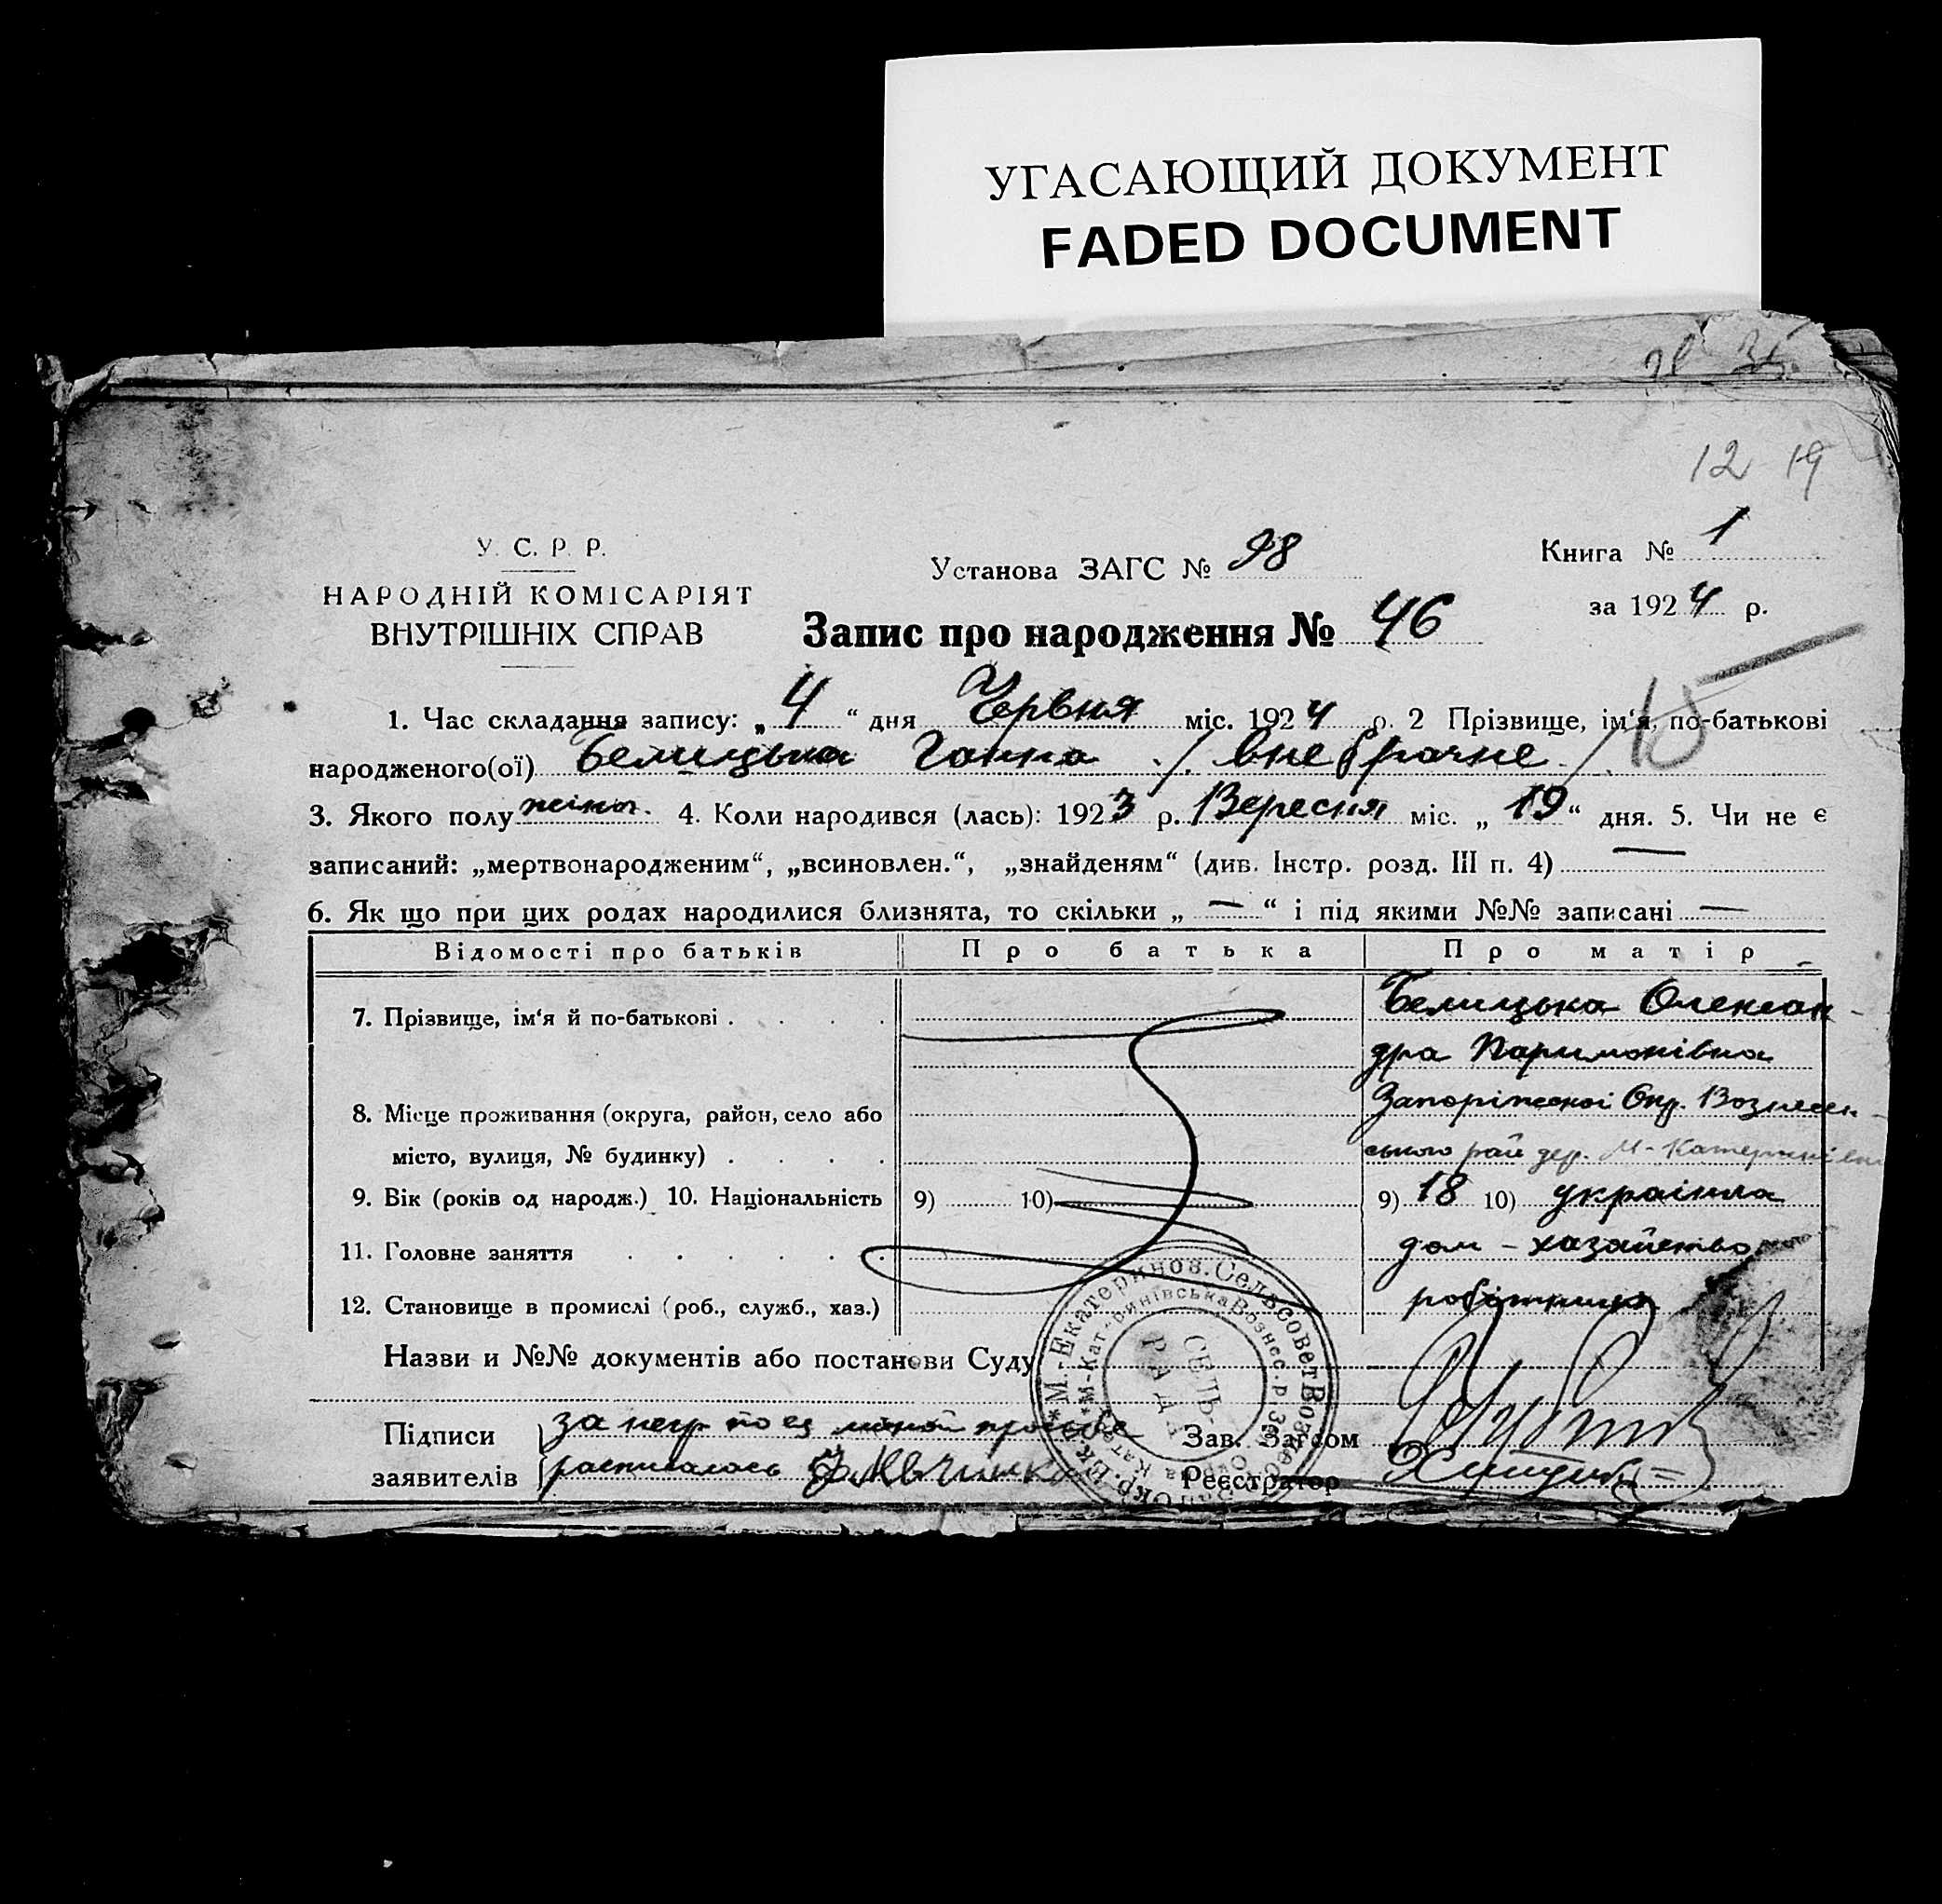 УГАСАЮЩИЙ ДОКУМЕНТ
FADED DOCUMENT
12 19
У. С. Р. Р.
НАРОДНІЙ КОМІСАРІЯТ
ВНУТРІШНІХ СПРАВ
Установа ЗАГС № 98
Книга № 1
за 1924 р.
Запис про народження № 46
15
1. Час складання запису: „4“ дня Червня міс. 1924 р. 2 Прізвище, ім‘я, по-батькові
народженого(ої) Белицька Ганна ./. внебрачне ./.
3. Якого полу жіноч. 4. Коли народився (лась): 1923 р. Вересня міс. „19“ дня. 5. Чи не є
записаний: „мертвонародженим“, „всиновлен.“, „знайденям“ (див. Інстр. розд. III п. 4) —
6. Як що при цих родах народилися близнята, то скільки „—“ і під якими №№ записані —
Відомості про батьків Про батька Про матір
7. Прізвище, ім‘я й по-батькові . . . . Белицька Олексан-
дра Паримонівна
8. Місце проживання (округа, район, село або Запоріжської Окр. Вознесен-
місто, вулиця, № будинку) . . . . ського рай дер. М-Катеринівки
9. Вік (років од народж.) 10. Національність 9) 10) 9) 18 10) українка
11. Головне заняття . . . . . . дом - хазайство
12. Становище в промислі (роб., служб., хаз.) робітниця
Назви и №№ документів або постанови Суду
Підписи за негр по ец личной просьбе
заявителів расписалась
Зав. Загсом
Реєстратор
*М.-Екатеринов. Сельсовет Вознес
*М-Катеринівська Вознес. р.
СЕЛЬ-
РАДА